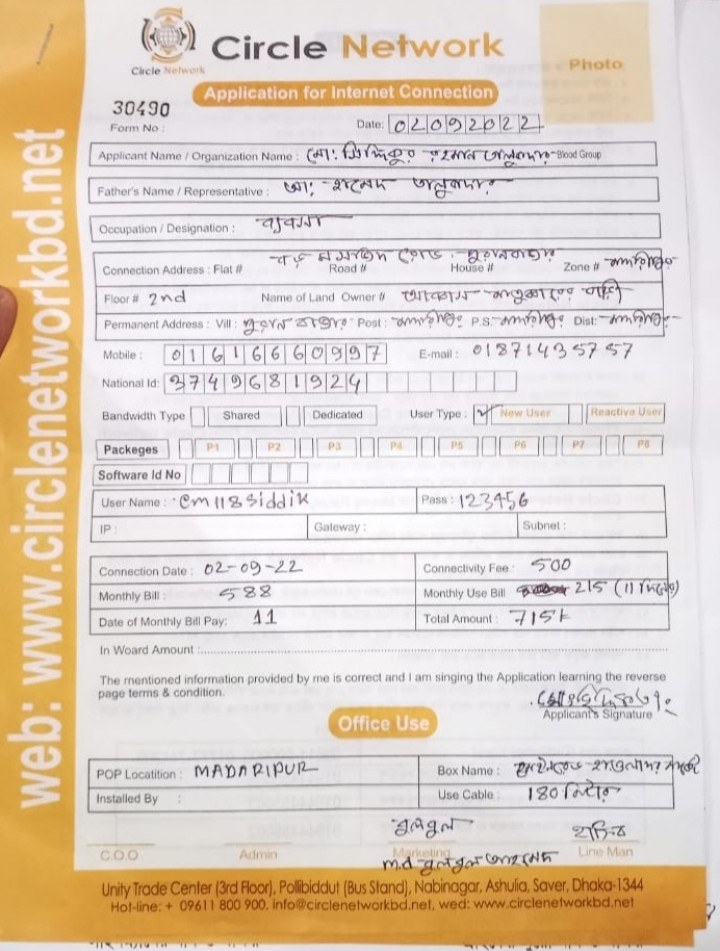 web: www.circlenetworkbd.net
Circle Network
Circle Network
Photo
Application for Internet Connection
30490
Form No :
Date: 02092022
Applicant Name / Organization Name : মো: সিদ্দিকুর রহমান তালুকদার Blood Group
Father's Name / Representative : তালুকদার
Occupation / Designation : ব্যবসা
বড় মসজিদ রোড, পুরানবাজার
Connection Address : Flat # Road # House # Zone # মাদারীপুর
Floor # 2nd Name of Land Owner #
Permanent Address : Vill : পুরান বাজার Post : মাদারীপুর P.S- মাদারীপুর Dist:- মাদারীপুর
Mobile : 01616660997 E-mail : 01871435757
National Id: 3749681924
Bandwidth Type Shared Dedicated User Type : ✓ New User Reactive User
Packeges P1 P2 P3 P4 P5 P6 P7 P8
Software Id No
User Name : cm118siddik Pass : 123456
IP : Gateway : Subnet :
Connection Date : 02-09-22 Connectivity Fee : 500
Monthly Bill : 588 Monthly Use Bill 215 (11 দিনের)
Date of Monthly Bill Pay: 11 Total Amount : 715৳
In Woard Amount :
The mentioned information provided by me is correct and I am singing the Application learning the reverse
page terms & condition.
Applicant's Signature
Office Use
POP Locatition : MADARIPUR Box Name :
Installed By : Use Cable : 180 মিটার
বুলবুল
C.O.O Admin Marketing Line Man
md বুলবুল আহমেদ
Unity Trade Center (3rd Floor), Pollibiddut (Bus Stand), Nabinagar, Ashulia, Saver, Dhaka-1344
Hot-line: + 09611 800 900, info@circlenetworkbd.net, wed: www.circlenetworkbd.net